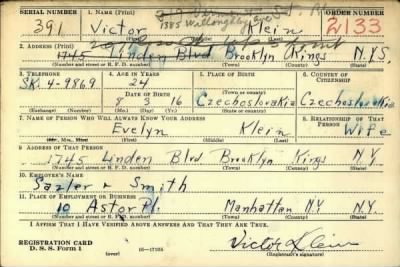 SERIAL NUMBER 1. NAME (Print) ORDER NUMBER
1385 Willoughby Ave
391 Victor Klein 2133
(First) (Middle) (Last)
2. ADDRESS (Print)
1745 Linden Blvd Brooklyn Kings N.Y.S.
(Number and street or R. F. D. number) (Town) (County) (State)
3. TELEPHONE 4. AGE IN YEARS 5. PLACE OF BIRTH 6. COUNTRY OF CITIZENSHIP
24
SK. 4-9869 DATE OF BIRTH Czechoslovakia Czechoslovakia
8 3 16
(Exchange) (Number) (Mo.) (Day) (Yr.) (Town or county) (State or country)
7. NAME OF PERSON WHO WILL ALWAYS KNOW YOUR ADDRESS 8. RELATIONSHIP OF THAT PERSON
Evelyn Klein Wife
(Mr., Mrs., Miss) (First) (Middle) (Last)
9. ADDRESS OF THAT PERSON
1745 Linden Blvd. Brooklyn Kings N.Y.
(Number and street or R. F. D. number) (Town) (County) (State)
10. EMPLOYER'S NAME
Smith
11. PLACE OF EMPLOYMENT OR BUSINESS
10 Astor Pl. Manhattan N.Y. N.Y.
(Number and street or R. F. D. number) (Town) (County) (State)
I AFFIRM THAT I HAVE VERIFIED ABOVE ANSWERS AND THAT THEY ARE TRUE.
REGISTRATION CARD
D. S. S. Form 1 (over) 16—17105 Victor Klein
(Registrant's signature)